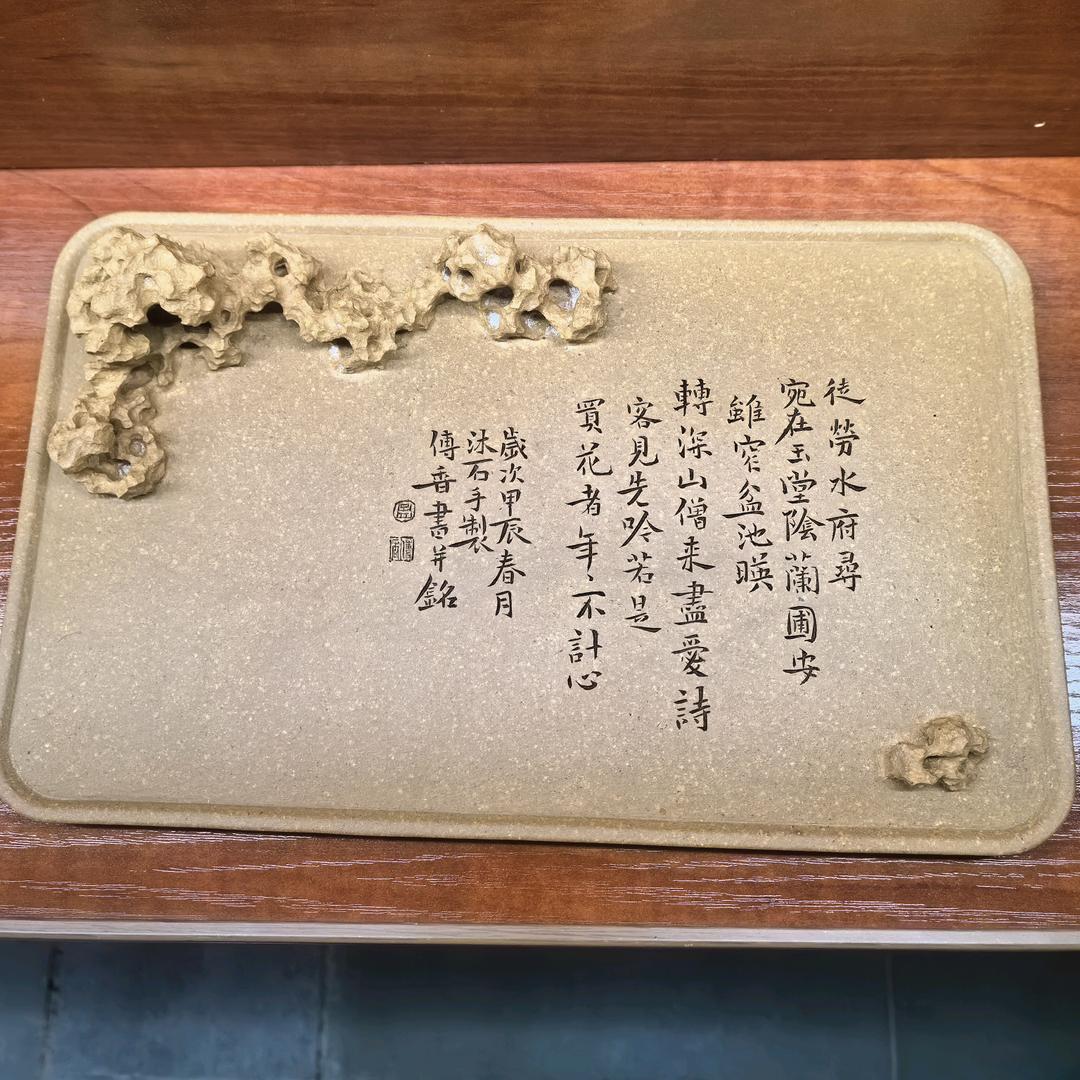 徒勞水府尋
宛在玉堂陰蘭圃安
雖窄盆池暎
轉深山僧来盡愛詩
客見先吟若是
買花者年〻不計心
歲次甲辰春月
沐石手製
傳香書并銘